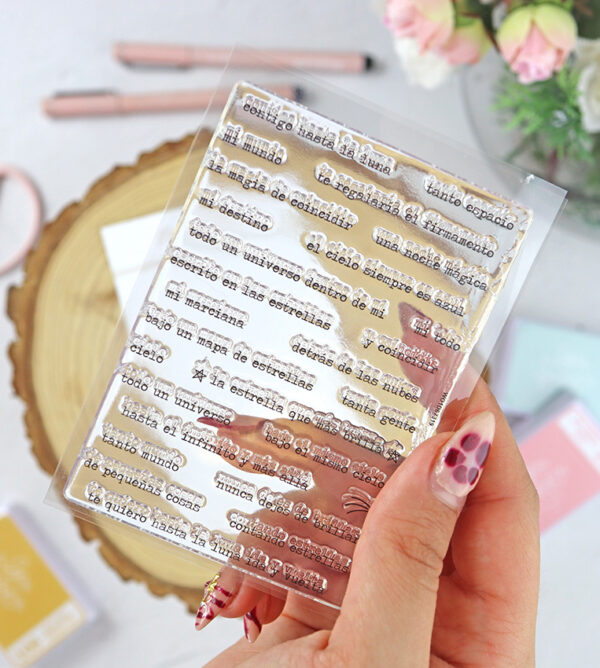 contigo hasta la luna
tanto espacio
mi mundo
te regalaría el firmamento
la magia de coincidir
una noche mágica
mi destino
el cielo siempre es azul
todo un universo dentro de mi
mi todo
escrito en las estrellas
y coincidir
mi marciana
detrás de las nubes
bajo un mapa de estrellas
tanta gente
cielo
la estrella que más brilla
todo un universo
bajo el mismo cielo
hasta el infinito y más allá
tanto mundo
nunca dejes de brillar
de pequeñas cosas
contando estrellas
te quiero hasta la luna ida y vuelta